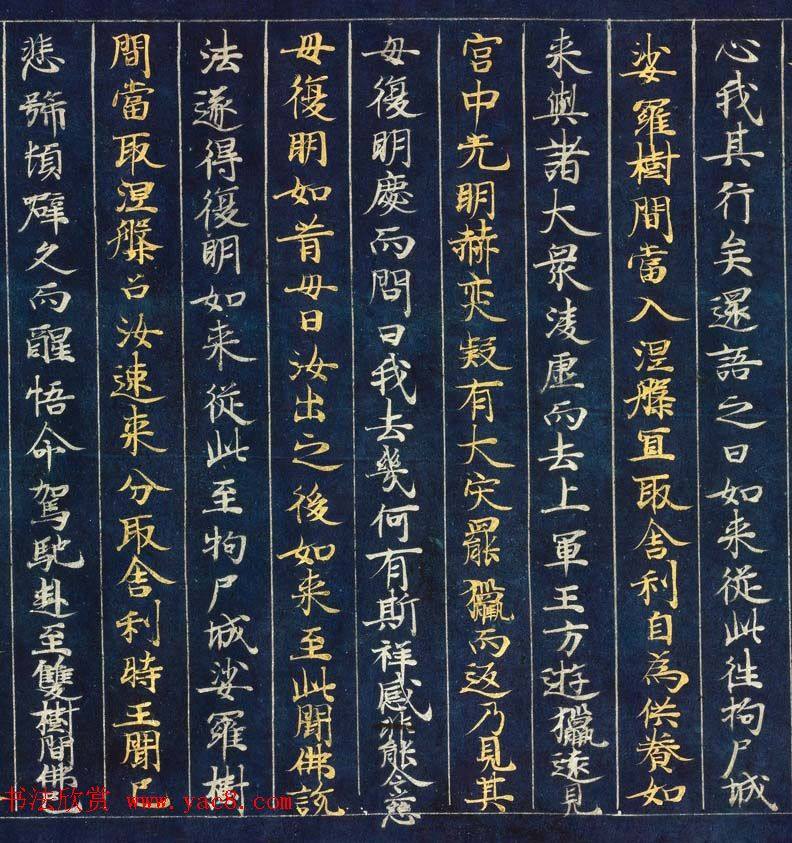 心我其行矣還語之曰如来從此徃拘尸城
娑羅樹間當入涅槃宜取舍利自為供養如
来與諸大衆淩虛而去上軍王方遊獵遠見
宫中光明赫奕疑有大灾罷獵而返乃見其
母復明慶而問曰我去幾何有斯祥感能令慈
母復明如昔母曰汝出之後如来至此聞佛說
法遂得復明如来從此至拘尸城娑羅樹
間當取涅槃召汝速来分取舍利時王聞已
悲號頓躃久而醒悟命駕馳赴至雙樹間佛已
书法欣赏 www.yac8.com